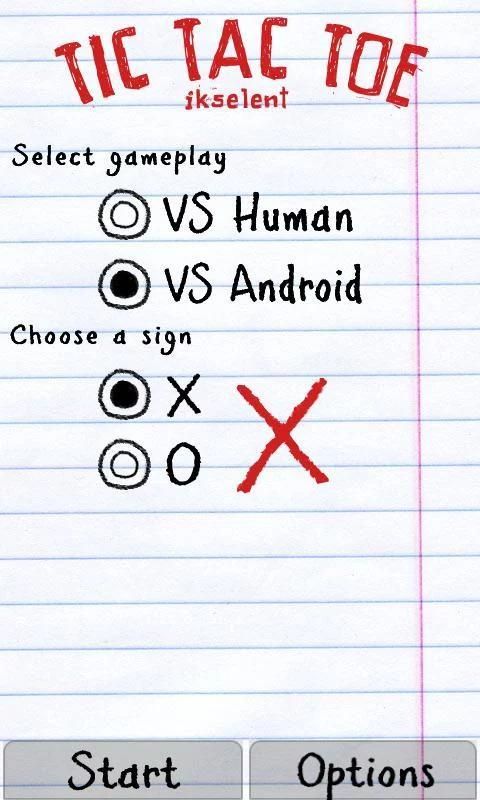 TIC TAC TOE
ikselent
Select gameplay
VS Human
VS Android
Choose a sign
X
O
X
Start
Options